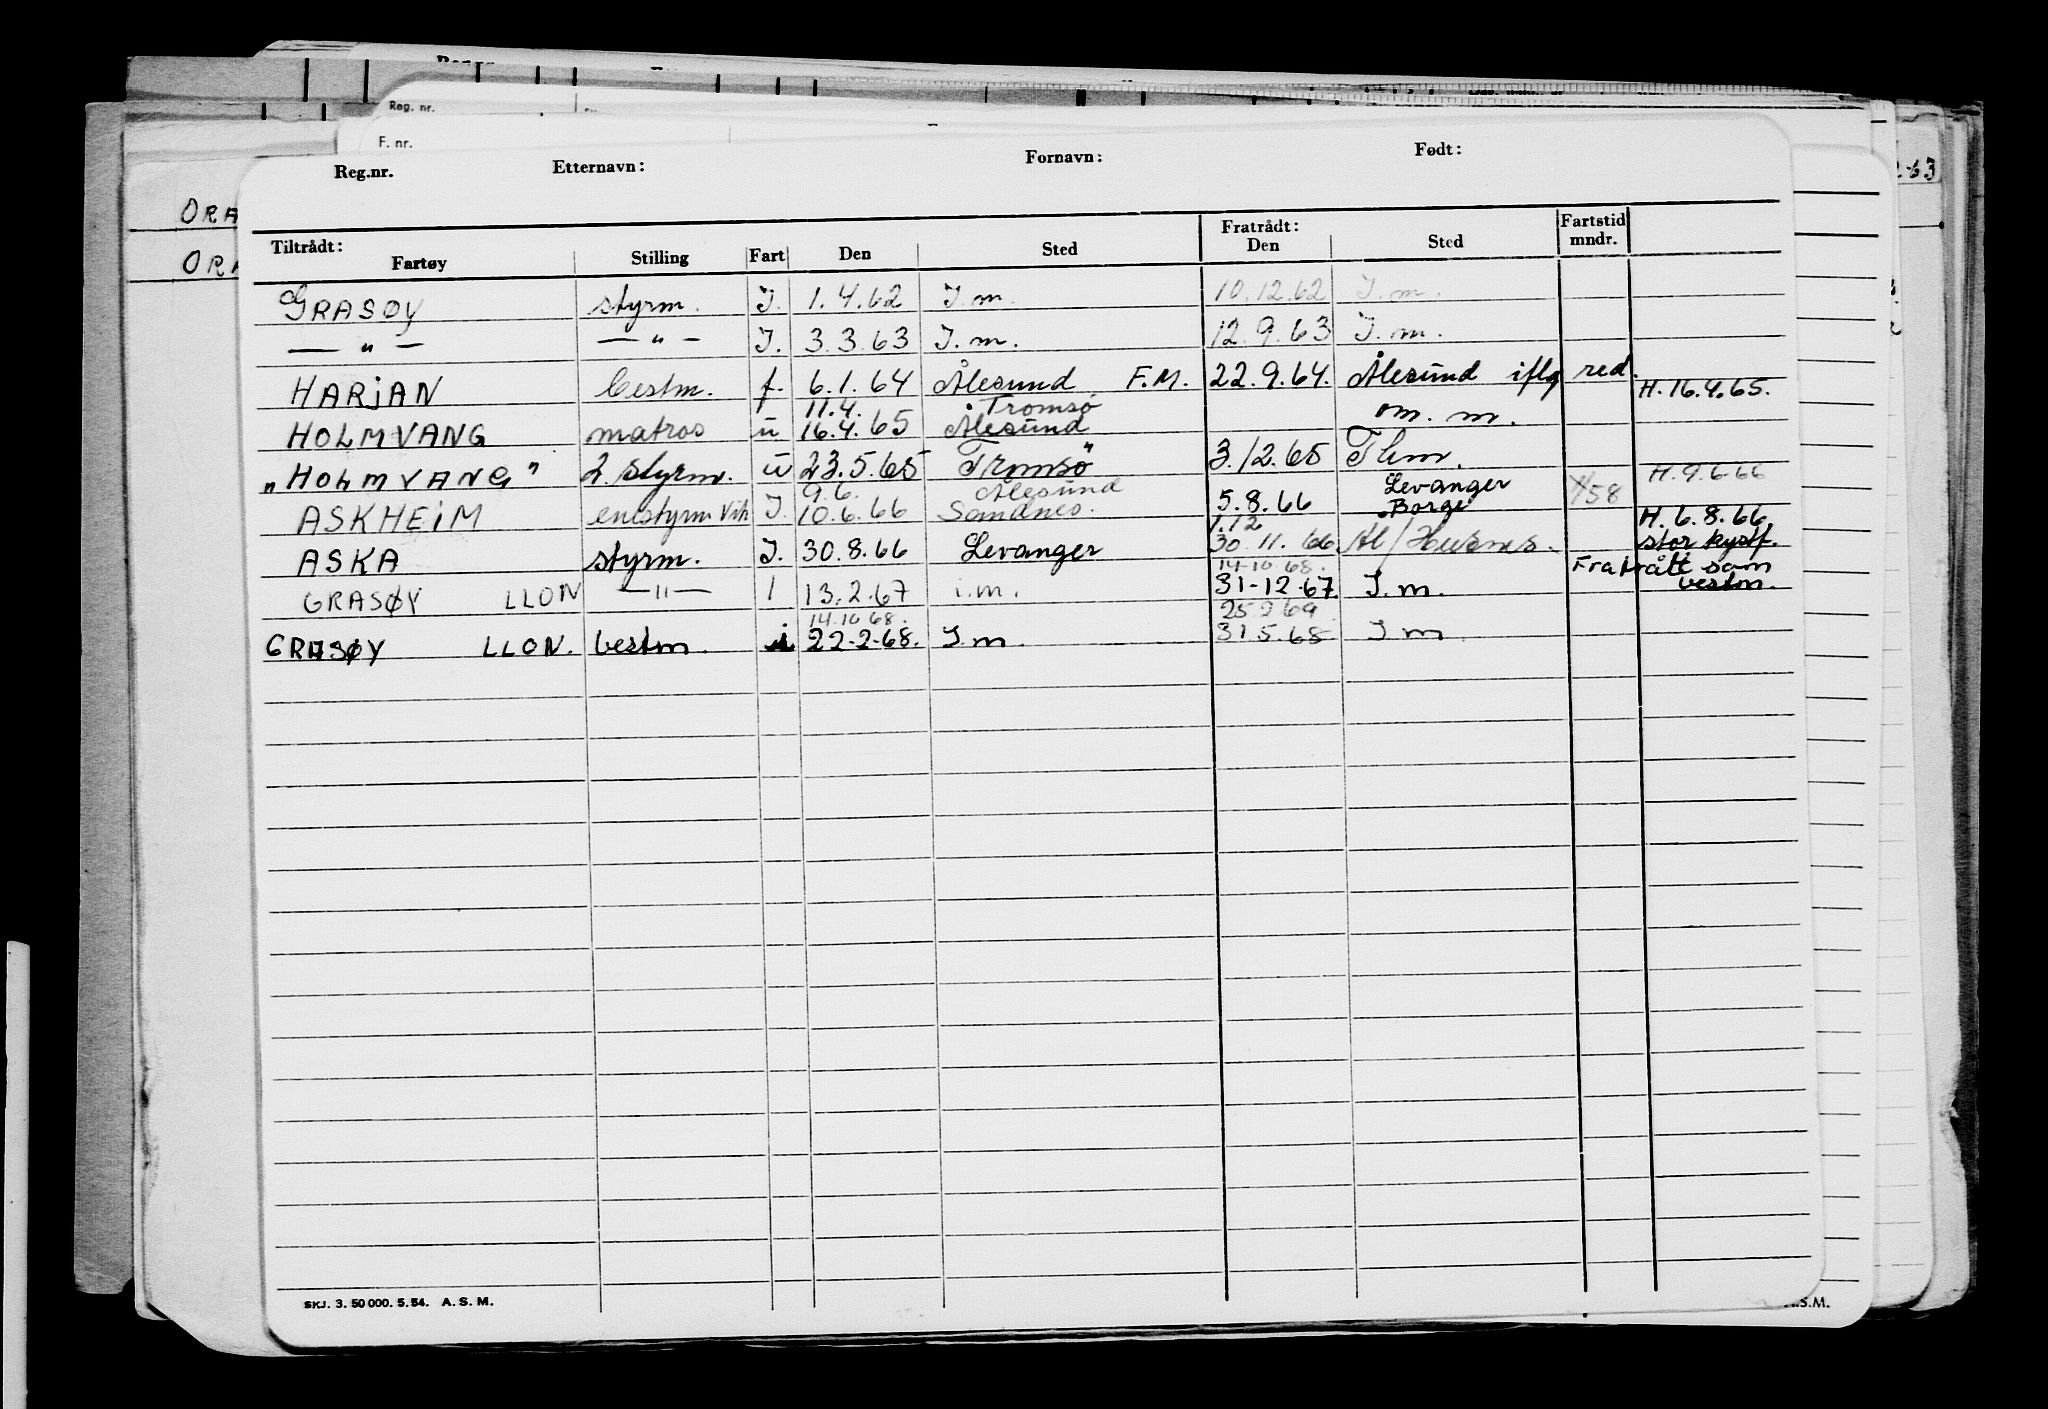 Reg. nr.
F. nr.
Reg.nr. Etternavn: Fornavn: Født:
ORA
ORA
Tiltrådt: Fratrådt: Fartstid
Fartøy Stilling Fart Den Sted Den Sted mndr.
GRASØY styrm. I. 1.4.62 I.m. 10.12.62 I.m.
— " — — " — I. 3.3.63 I.m. 12.9.63 I.m.
HARJAN bestm. f. 6.1.64 Ålesund F.M. 22.9.64. Ålesund iflg red. H.16.4.65.
11.4. Tromsø
HOLMVANG matros u 16.4.65 Ålesund om. m.
„HOLMVANG" 2. styrm. u 23.5.65 Tromsø" 3.12.65 Thm. H.9.6.66
9.6. Ålesund Levanger
ASKHEIM enestyrm Vik I. 10.6.66 Sandnes. 5.8.66 Borge 58
1.12 H. 6.8.66
ASKA styrm. I. 30.8.66 Levanger 30.11.66 Ål/Husnes. stor kystf.
14-10-68. Fratrått som
GRASØY LLON —"— I 13.2.67 i.m. 31-12-67. I.m. bestm.
14.10 68. 25.2 69
GRASØY LLON. bestm. i 22-2-68. I.m. 31.5.68 I.m.
SKJ. 3. 50 000. 5. 54. A. S. M.
.S.M.